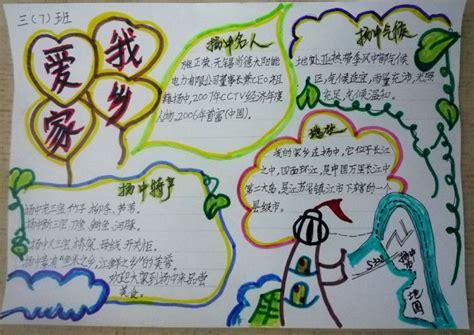 三(7)班
我爱家乡
扬中名人
施正荣:无锡尚德太阳能
电力有限公司董事长兼CEO,祖
籍扬中,2007年CCTV经济年度
人物,2006年首富(中国)。
扬中气候
地处亚热带季风中部气候
区,气候稳定,雨量充沛,光照
充足,气候温和。
地址
我的家乡在扬中,它位于长江
之中,四面环江,是中国万里长江中
第二大岛,是江苏省镇江市下辖的一个
县级市。
扬中特产
扬中老三宝:竹子、柳条、芦苇。
扬中新三宝:刀鱼、鮰鱼、河豚。
扬中又三宝:桥架、母线、开关柜。
扬中素有"鱼米之乡,江鲜之乡"的美誉。
欢迎大家到扬中来品尝
美食。
扬中
地图